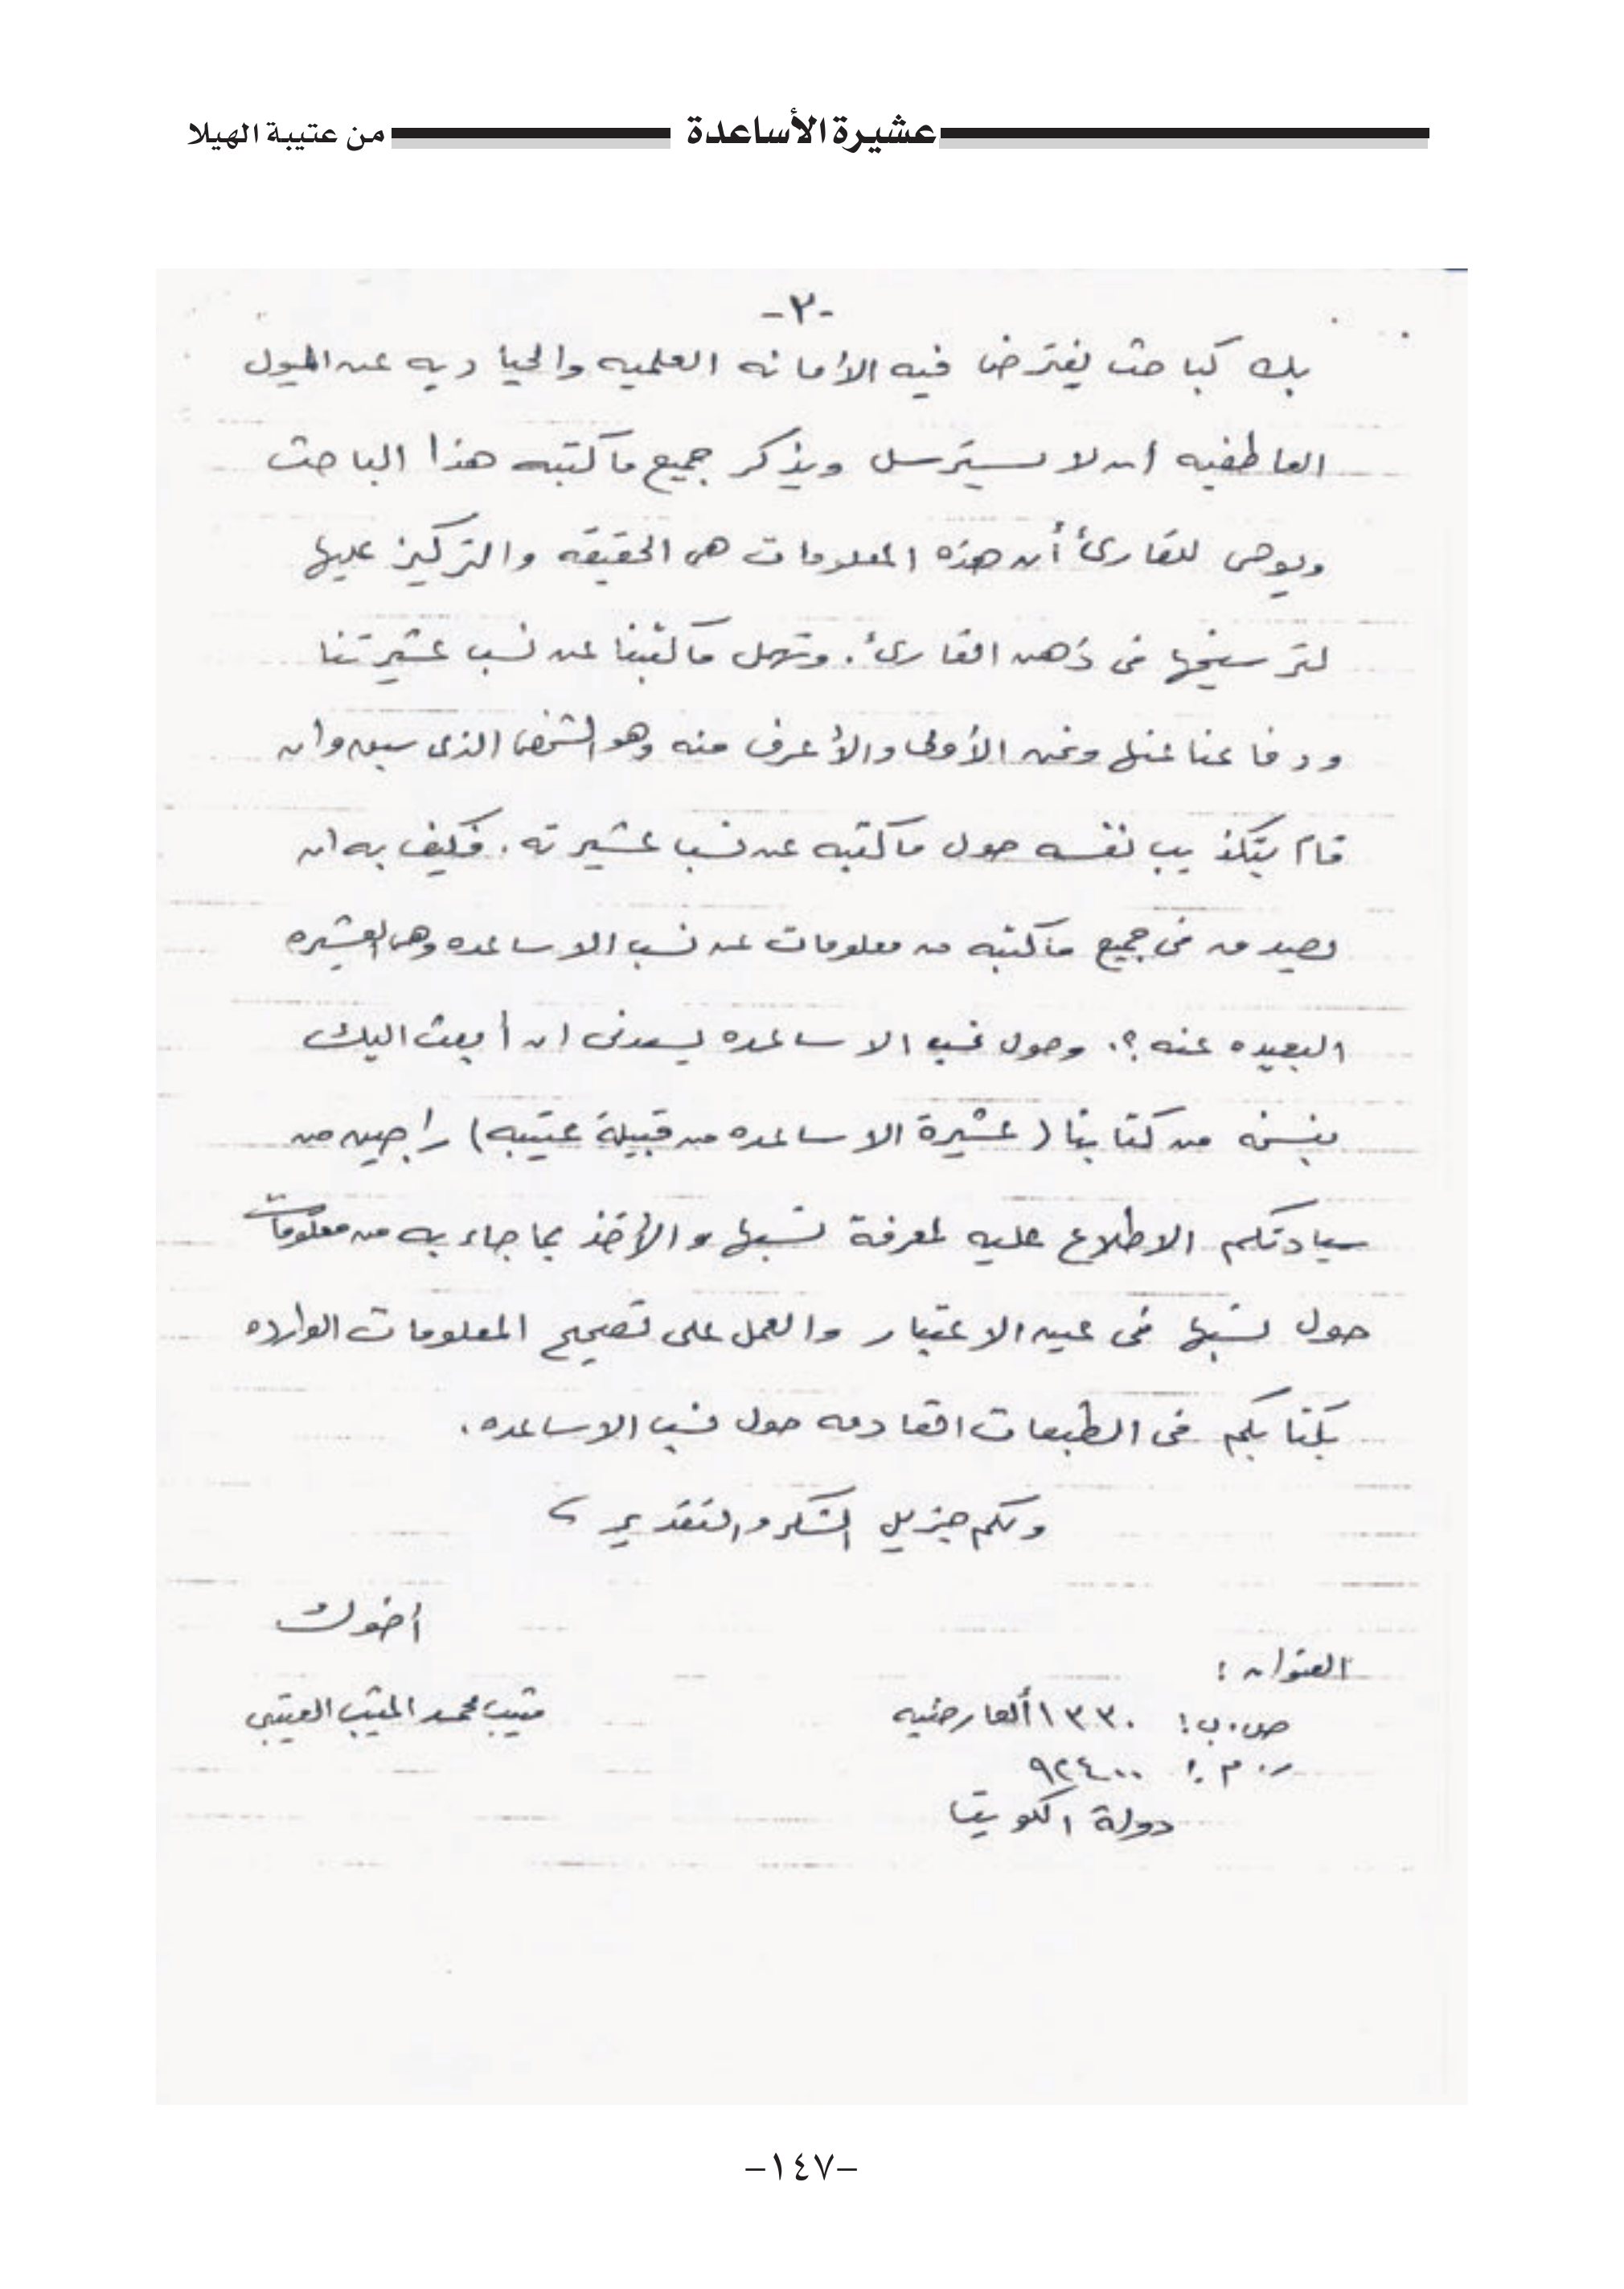 عشيرة الأساعدة من عتيبة الهيلا
-٢-
بك كباحث يفترض فيه الأمانه العلميه والحياديه عن الميول
العاطفيه ان لا يسترسل ويذكر جميع ماكتبه هذا الباحث
ويوحى للقارئ أن هذه المعلومات هى الحقيقه والتركيز عليها
لترسيخها فى ذهن القارئ. وتهمل ماكتبنا عن نسب عشيرتنا
ودفاعنا عنها ونحن الأولى والأعرف منه وهو الشخص الذى سبق وان
قام بتكذيب نفسه حول ماكتبه عن نسب عشيرته. فكيف به ان
يصدق فى جميع ماكتبه من معلومات عن نسب الاساعده وهى العشيره
البعيده عنه؟. وحول نسب الاساعده يسعدنى ان أبعث اليك
بنسخه من كتابنا (عشيرة الاساعده من قبيلة عتيبه) راجين من
سيادتكم الاطلاع عليه لمعرفة نسبها والأخذ بما جاء به من معلومات
حول نسبها فى عين الاعتبار والعمل على تصحيح المعلومات الوارده
بكتابكم فى الطبعات القادمه حول نسب الاساعده.
ولكم جزيل الشكر والتقدير
أخوك
العنوان:
متيب محمد المتيب العتيبى
ص.ب: ١٣٣٠ العارضيه
ر.م: ٩٢٤٠٠
دولة الكويت
-١٤٧-